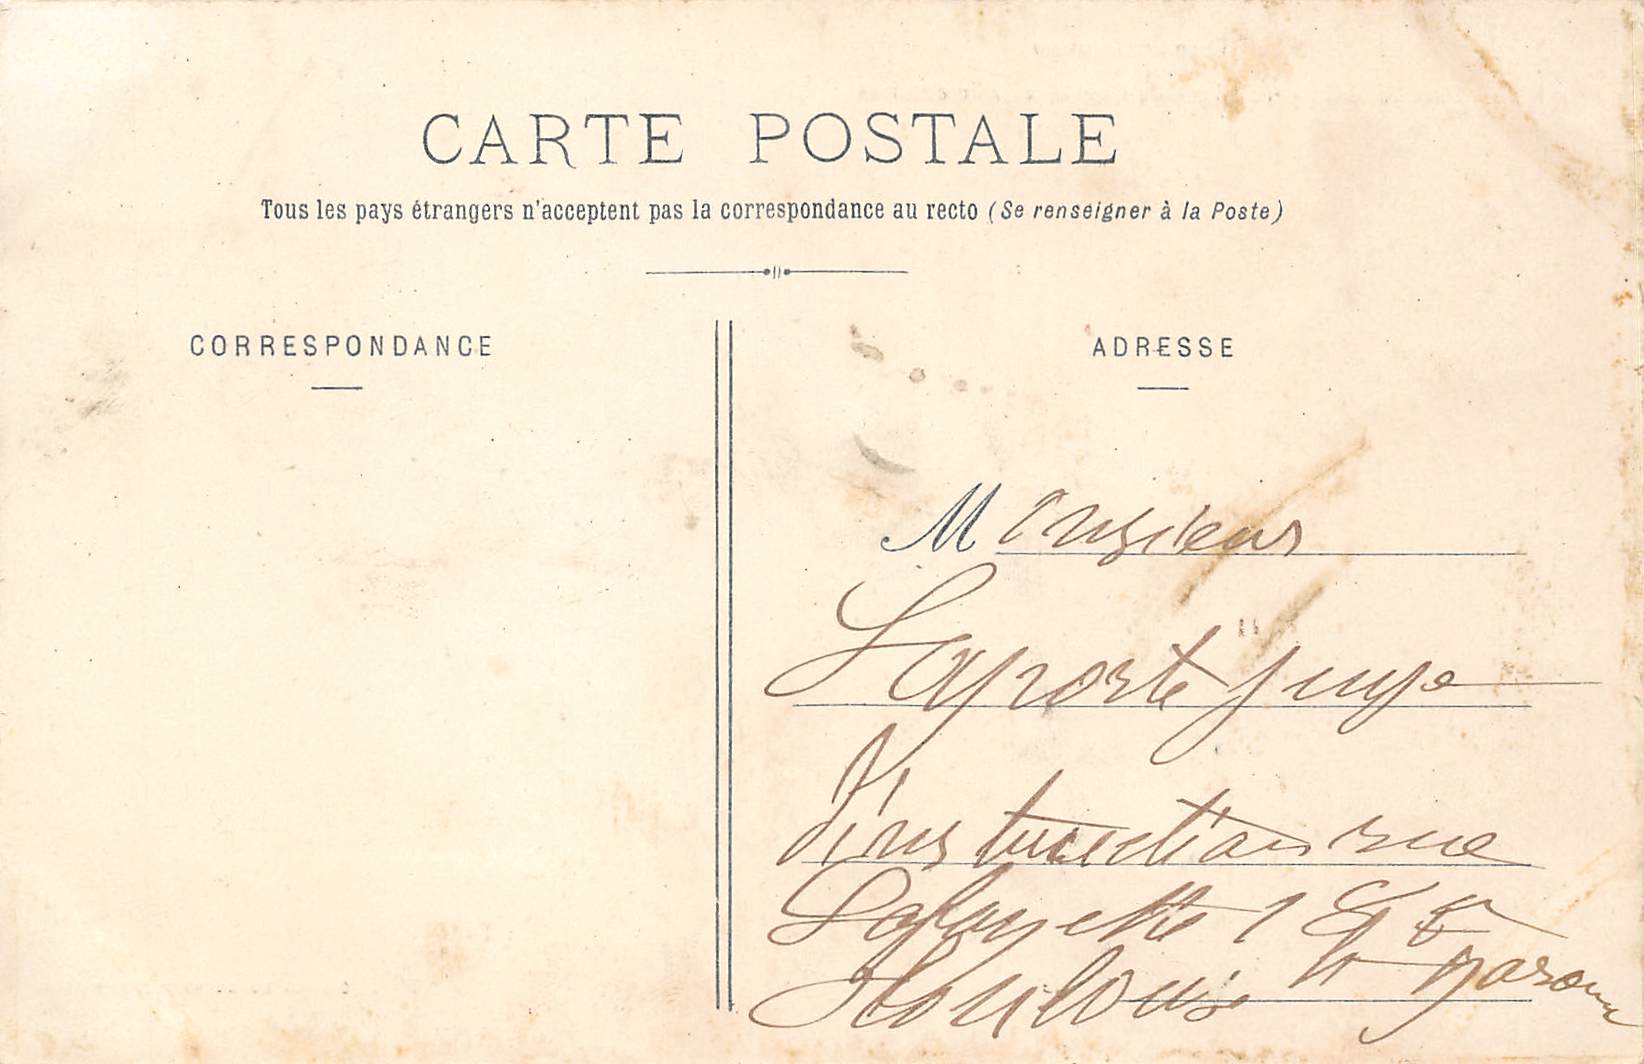 CARTE POSTALE
Tous les pays étrangers n'acceptent pas la correspondance au recto (Se renseigner à la Poste)
CORRESPONDANCE
ADRESSE
Monsieur
Laporte juge
d'instruction rue
Lafayette 1
Toulouse h garonne